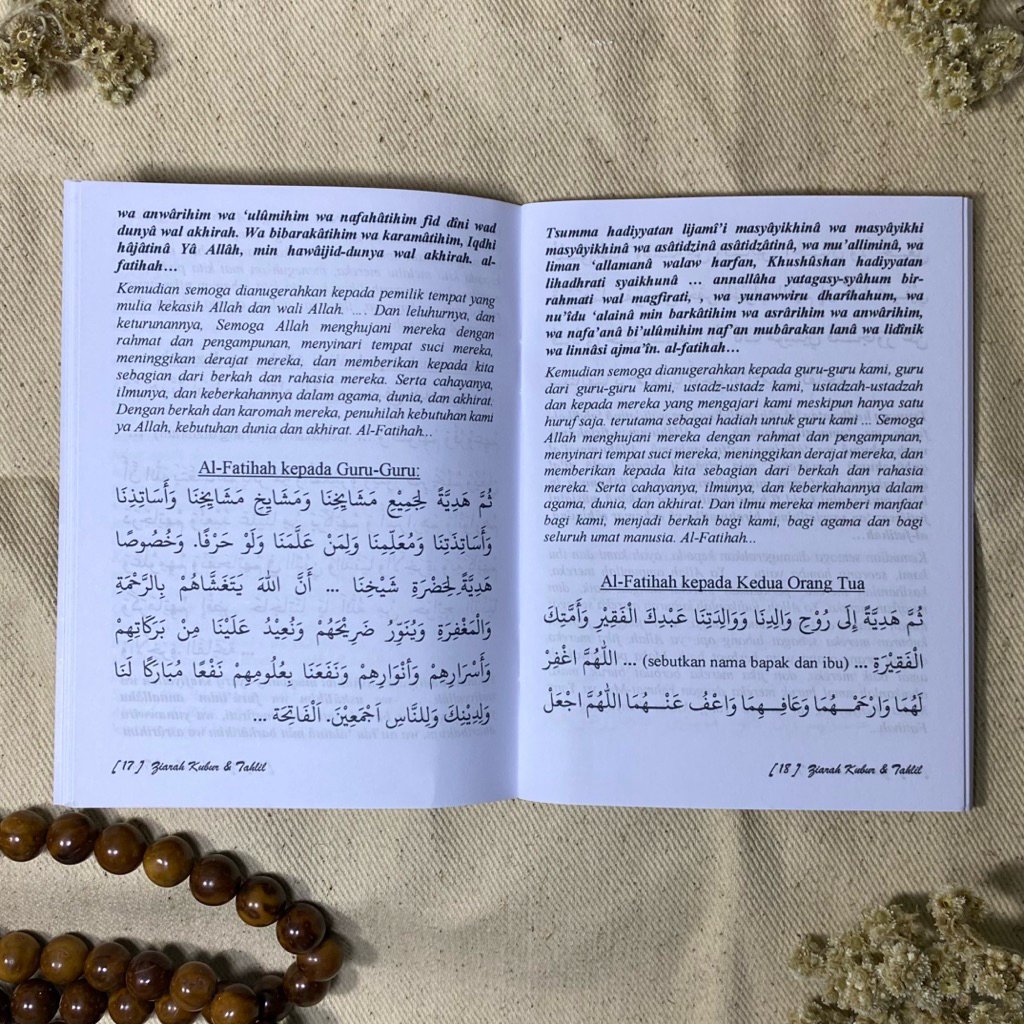 wa anwârihim wa ‘ulûmihim wa nafahâtihim fid dîni wad
dunyâ wal akhirah. Wa bibarakâtihim wa karamâtihim, Iqdhi
hâjâtinâ Yâ Allâh, min hawâijid-dunya wal akhirah. al-
fatihah…
Kemudian semoga dianugerahkan kepada pemilik tempat yang
mulia kekasih Allah dan wali Allah. …. Dan leluhurnya, dan
keturunannya, Semoga Allah menghujani mereka dengan
rahmat dan pengampunan, menyinari tempat suci mereka,
meninggikan derajat mereka, dan memberikan kepada kita
sebagian dari berkah dan rahasia mereka. Serta cahayanya,
ilmunya, dan keberkahannya dalam agama, dunia, dan akhirat.
Dengan berkah dan karomah mereka, penuhilah kebutuhan kami
ya Allah, kebutuhan dunia dan akhirat. Al-Fatihah...
Al-Fatihah kepada Guru-Guru:
ثُمَّ هَدِيَّةً لِجَمِيْعِ مَشَايِخِنَا وَمَشَايِخِ مَشَايِخِنَا وَأَسَاتِذَنَا
وَأَسَاتِذَتِنَا وَمُعَلِّمِنَا وَلِمَنْ عَلَّمَنَا وَلَوْ حَرْفًا. وَخُصُوصًا
هَدِيَّةً لِحَضْرَةِ شَيْخِنَا ... أَنَّ اللهَ يَتَغَشَّاهُمْ بِالرَّحْمَةِ
وَالْمَغْفِرَةِ وَيُنَوِّرُ ضَرِيْحَهُمْ وَنُعِيْدُ عَلَيْنَا مِنْ بَرَكَاتِهِمْ
وَأَسْرَارِهِمْ وَأَنْوَارِهِمْ وَنَفَعَنَا بِعُلُومِهِمْ نَفْعًا مُبَارَكًا لَنَا
وَلِدِيْنِكَ وَلِلنَّاسِ اَجْمَعِيْنَ. اَلْفَاتِحَة ...
[17] Ziarah Kubur & Tahlil
Tsumma hadiyyatan lijamî’i masyâyikhinâ wa masyâyikhi
masyâyikhinâ wa asâtidzinâ asâtidzâtinâ, wa mu’alliminâ, wa
liman ‘allamanâ walaw harfan, Khushûshan hadiyyatan
lihadhrati syaikhunâ … annallâha yatagasy-syâhum bir-
rahmati wal magfirati, , wa yunawwiru dharîhahum, wa
nu’îdu ‘alainâ min barkâtihim wa asrârihim wa anwârihim,
wa nafa’anâ bi’ulûmihim naf’an mubârakan lanâ wa lidînik
wa linnâsi ajma’în. al-fatihah…
Kemudian semoga dianugerahkan kepada guru-guru kami, guru
dari guru-guru kami, ustadz-ustadz kami, ustadzah-ustadzah
dan kepada mereka yang mengajari kami meskipun hanya satu
huruf saja. terutama sebagai hadiah untuk guru kami ... Semoga
Allah menghujani mereka dengan rahmat dan pengampunan,
menyinari tempat suci mereka, meninggikan derajat mereka, dan
memberikan kepada kita sebagian dari berkah dan rahasia
mereka. Serta cahayanya, ilmunya, dan keberkahannya dalam
agama, dunia, dan akhirat. Dan ilmu mereka memberi manfaat
bagi kami, menjadi berkah bagi kami, bagi agama dan bagi
seluruh umat manusia. Al-Fatihah...
Al-Fatihah kepada Kedua Orang Tua
ثُمَّ هَدِيَّةً إِلَى رُوْحِ وَالِدِنَا وَوَالِدَتِنَا عَبْدِكَ الْفَقِيْرِ وَأَمَّتِكَ
الْفَقِيْرَةِ ... (sebutkan nama bapak dan ibu) ... اَللّٰهُمَّ اغْفِرْ
لَهُمَا وَارْحَمْـــهُمَا وَعَافِــهِمَا وَاعْفُ عَنْـــهُمَا اَللّٰهُمَّ اجْعَلْ
[18] Ziarah Kubur & Tahlil